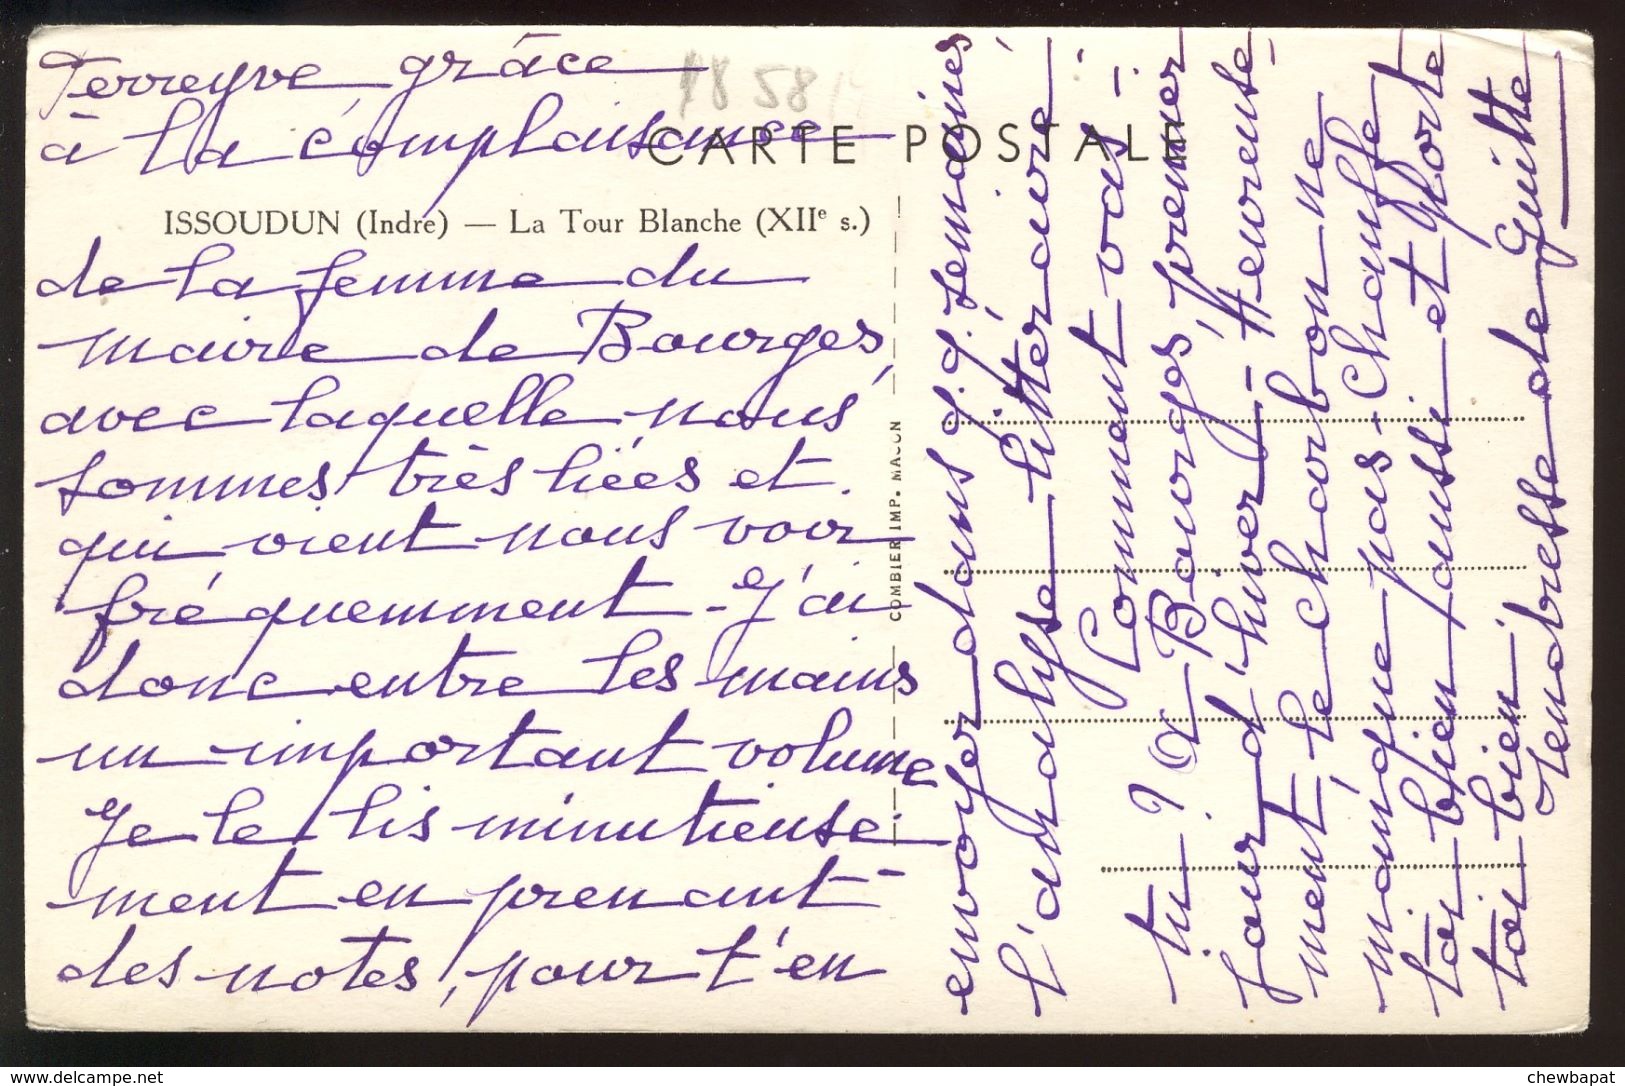 Perreyve grâce
à la complaisance
1858
CARTE POSTALE
ISSOUDUN (Indre) — La Tour Blanche (XIIe s.)
de la femme du
maire de Bourges,
avec laquelle nous
sommes très liées et
qui vient nous voir
fréquemment - J'ai
donc entre les mains
un important volume
Je le lis minutieuse
ment en prenant
des notes, pour t'en
COMBIER IMP. MACON
envoyer dans q.q. semaines
l'analyse littéraire
Comment vas-
tu ? A Bourges, premier
jour d'hiver - Heureuse
ment, le charbon ne
manque pas - Chauffe
toi bien aussi et porte
toi bien.
Tendresse de Guitte
www.delcampe.net
chewbapat